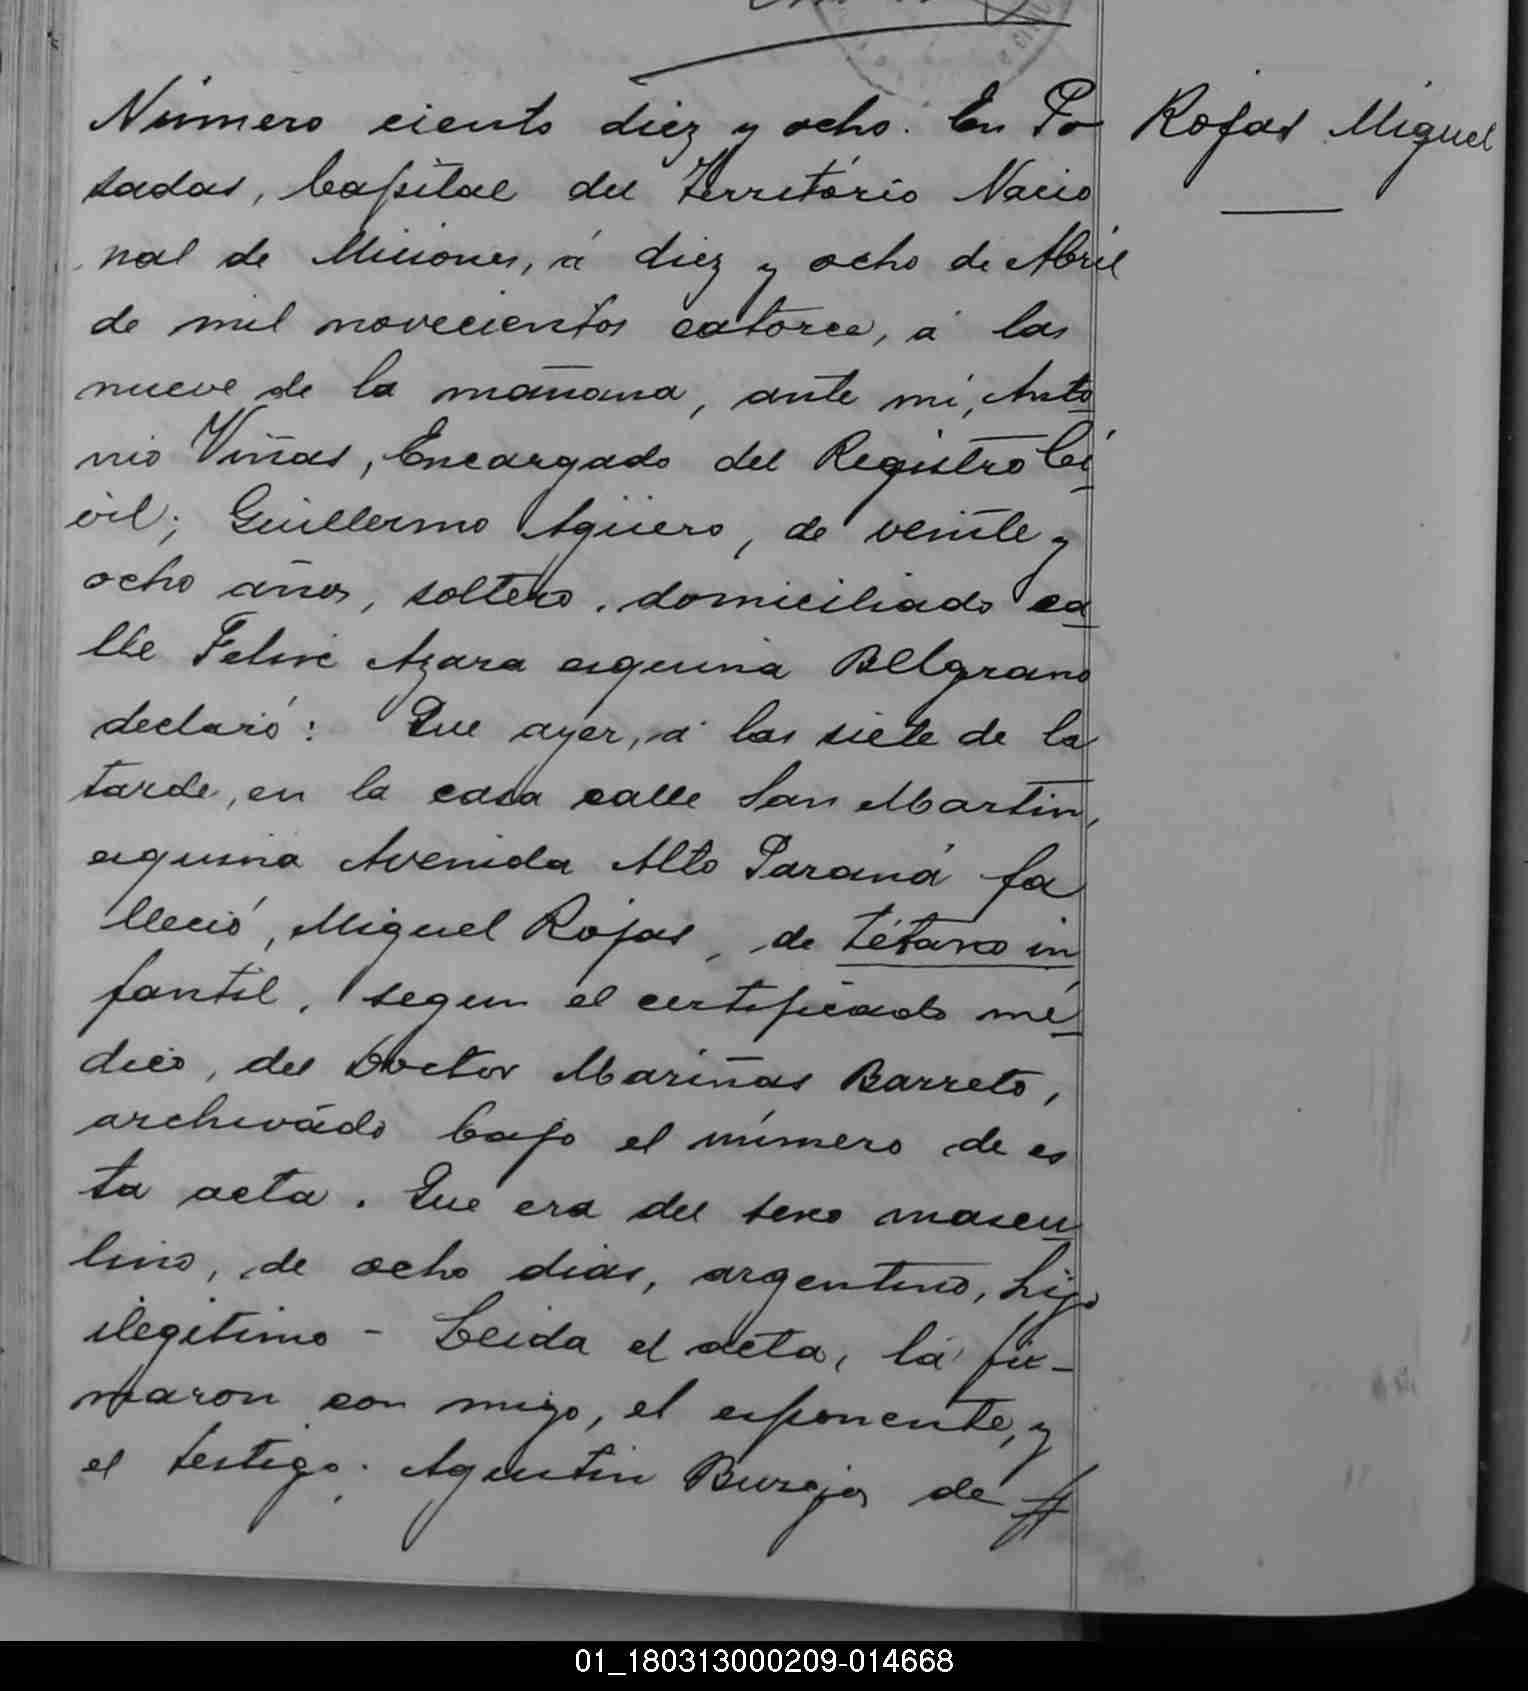 Número ciento diez y ocho. En Po
sadas, Capital del Territorio Nacio
nal de Misiones, á diez y ocho de Abril
de mil novecientos catorce, á las
nueve de la mañana, ante mi, Anto
nio Viñas, Encargado del Registro Ci
vil; Guillermo Agüero, de veinte y
ocho años, soltero, domiciliado ca
lle Felix Azara esquina Belgrano
declaró: Que ayer, á las siete de la
tarde, en la casa calle San Martin,
esquina Avenida Alto Paraná fa
lleció, Miguel Rojas, de tétano in
fantil, segun el certificado mé
dico, del Doctor Mariñas Barreto,
archivado bajo el número de es
ta acta. Que era del sexo mascu
lino, de ocho dias, argentino, hijo
ilegitimo - Leida el acta, la fir-
maron con migo, el exponente, y
el testigo. Agustin Burgos de #
Rojas Miguel
01_180313000209-014668